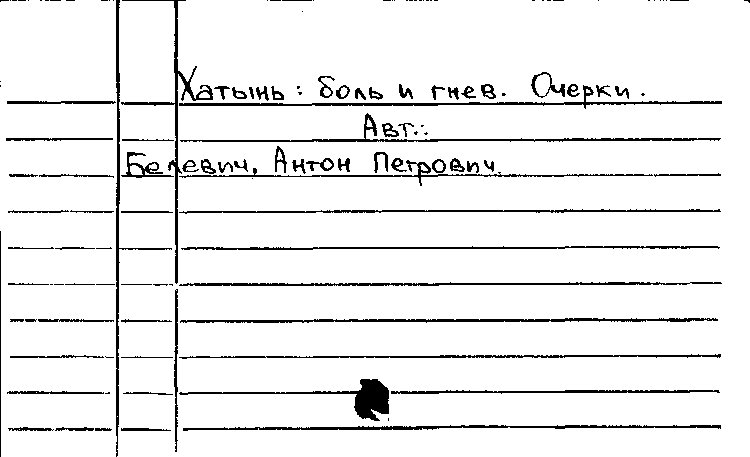 Хатынь: боль и гнев. Очерки.
Авт.:
Белевич, Антон Петрович.